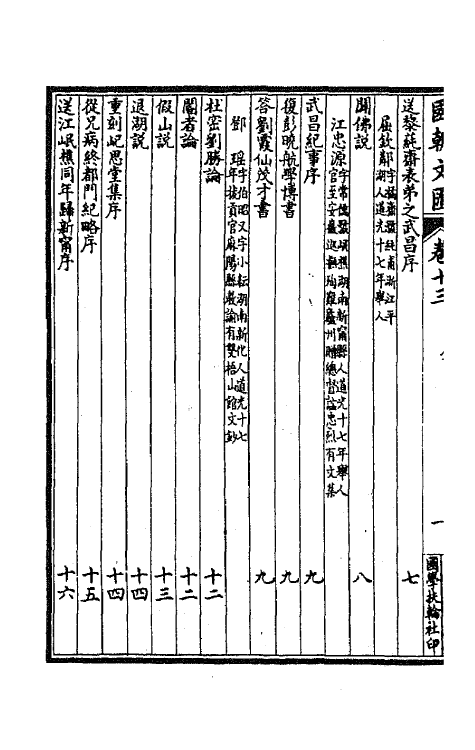 國朝文匯 卷十三 一 國學扶輪社印
送黎蒓齋表弟之武昌序 七
江忠源 字常孺號岷樵湖南新甯縣人道光十七年舉人
官至安徽巡撫殉難廬州贈總督諡忠烈有文集
闢佛說 八
武昌紀事序 九
復彭曉航學博書 九
答劉霞仙茂才書 九
鄧瑤 字伯昭又字小耘湖南新化人道光十七
年拔貢官麻陽縣教諭有雙梧山館文鈔
杜密劉勝論 十二
閹者論 十二
假山說 十三
退湖說 十四
重刻屺思堂集序 十四
從兄病終都門紀略序 十五
送江岷樵同年歸新甯序 十六